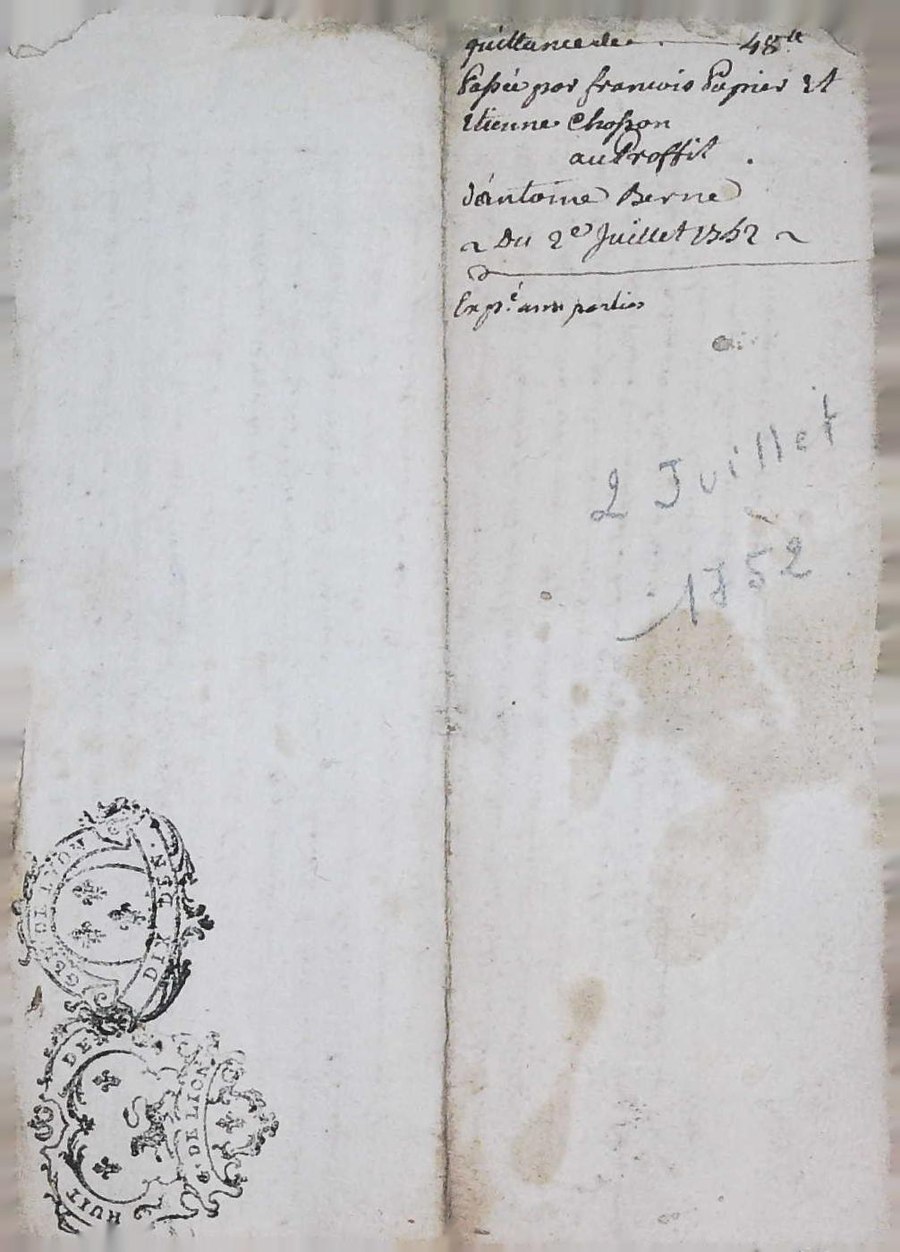 quittance de 48ᵗᵗ
Passée par francois Papier Et
Etienne Chosson
au Proffit
d'antoine Berne
~ Du 2ᵉ Juillet 1752 ~
Exp.é aux parties
2 Juillet
1752
GEN. DE LYON
DIX DEN.
HUIT DE
G. DE LION